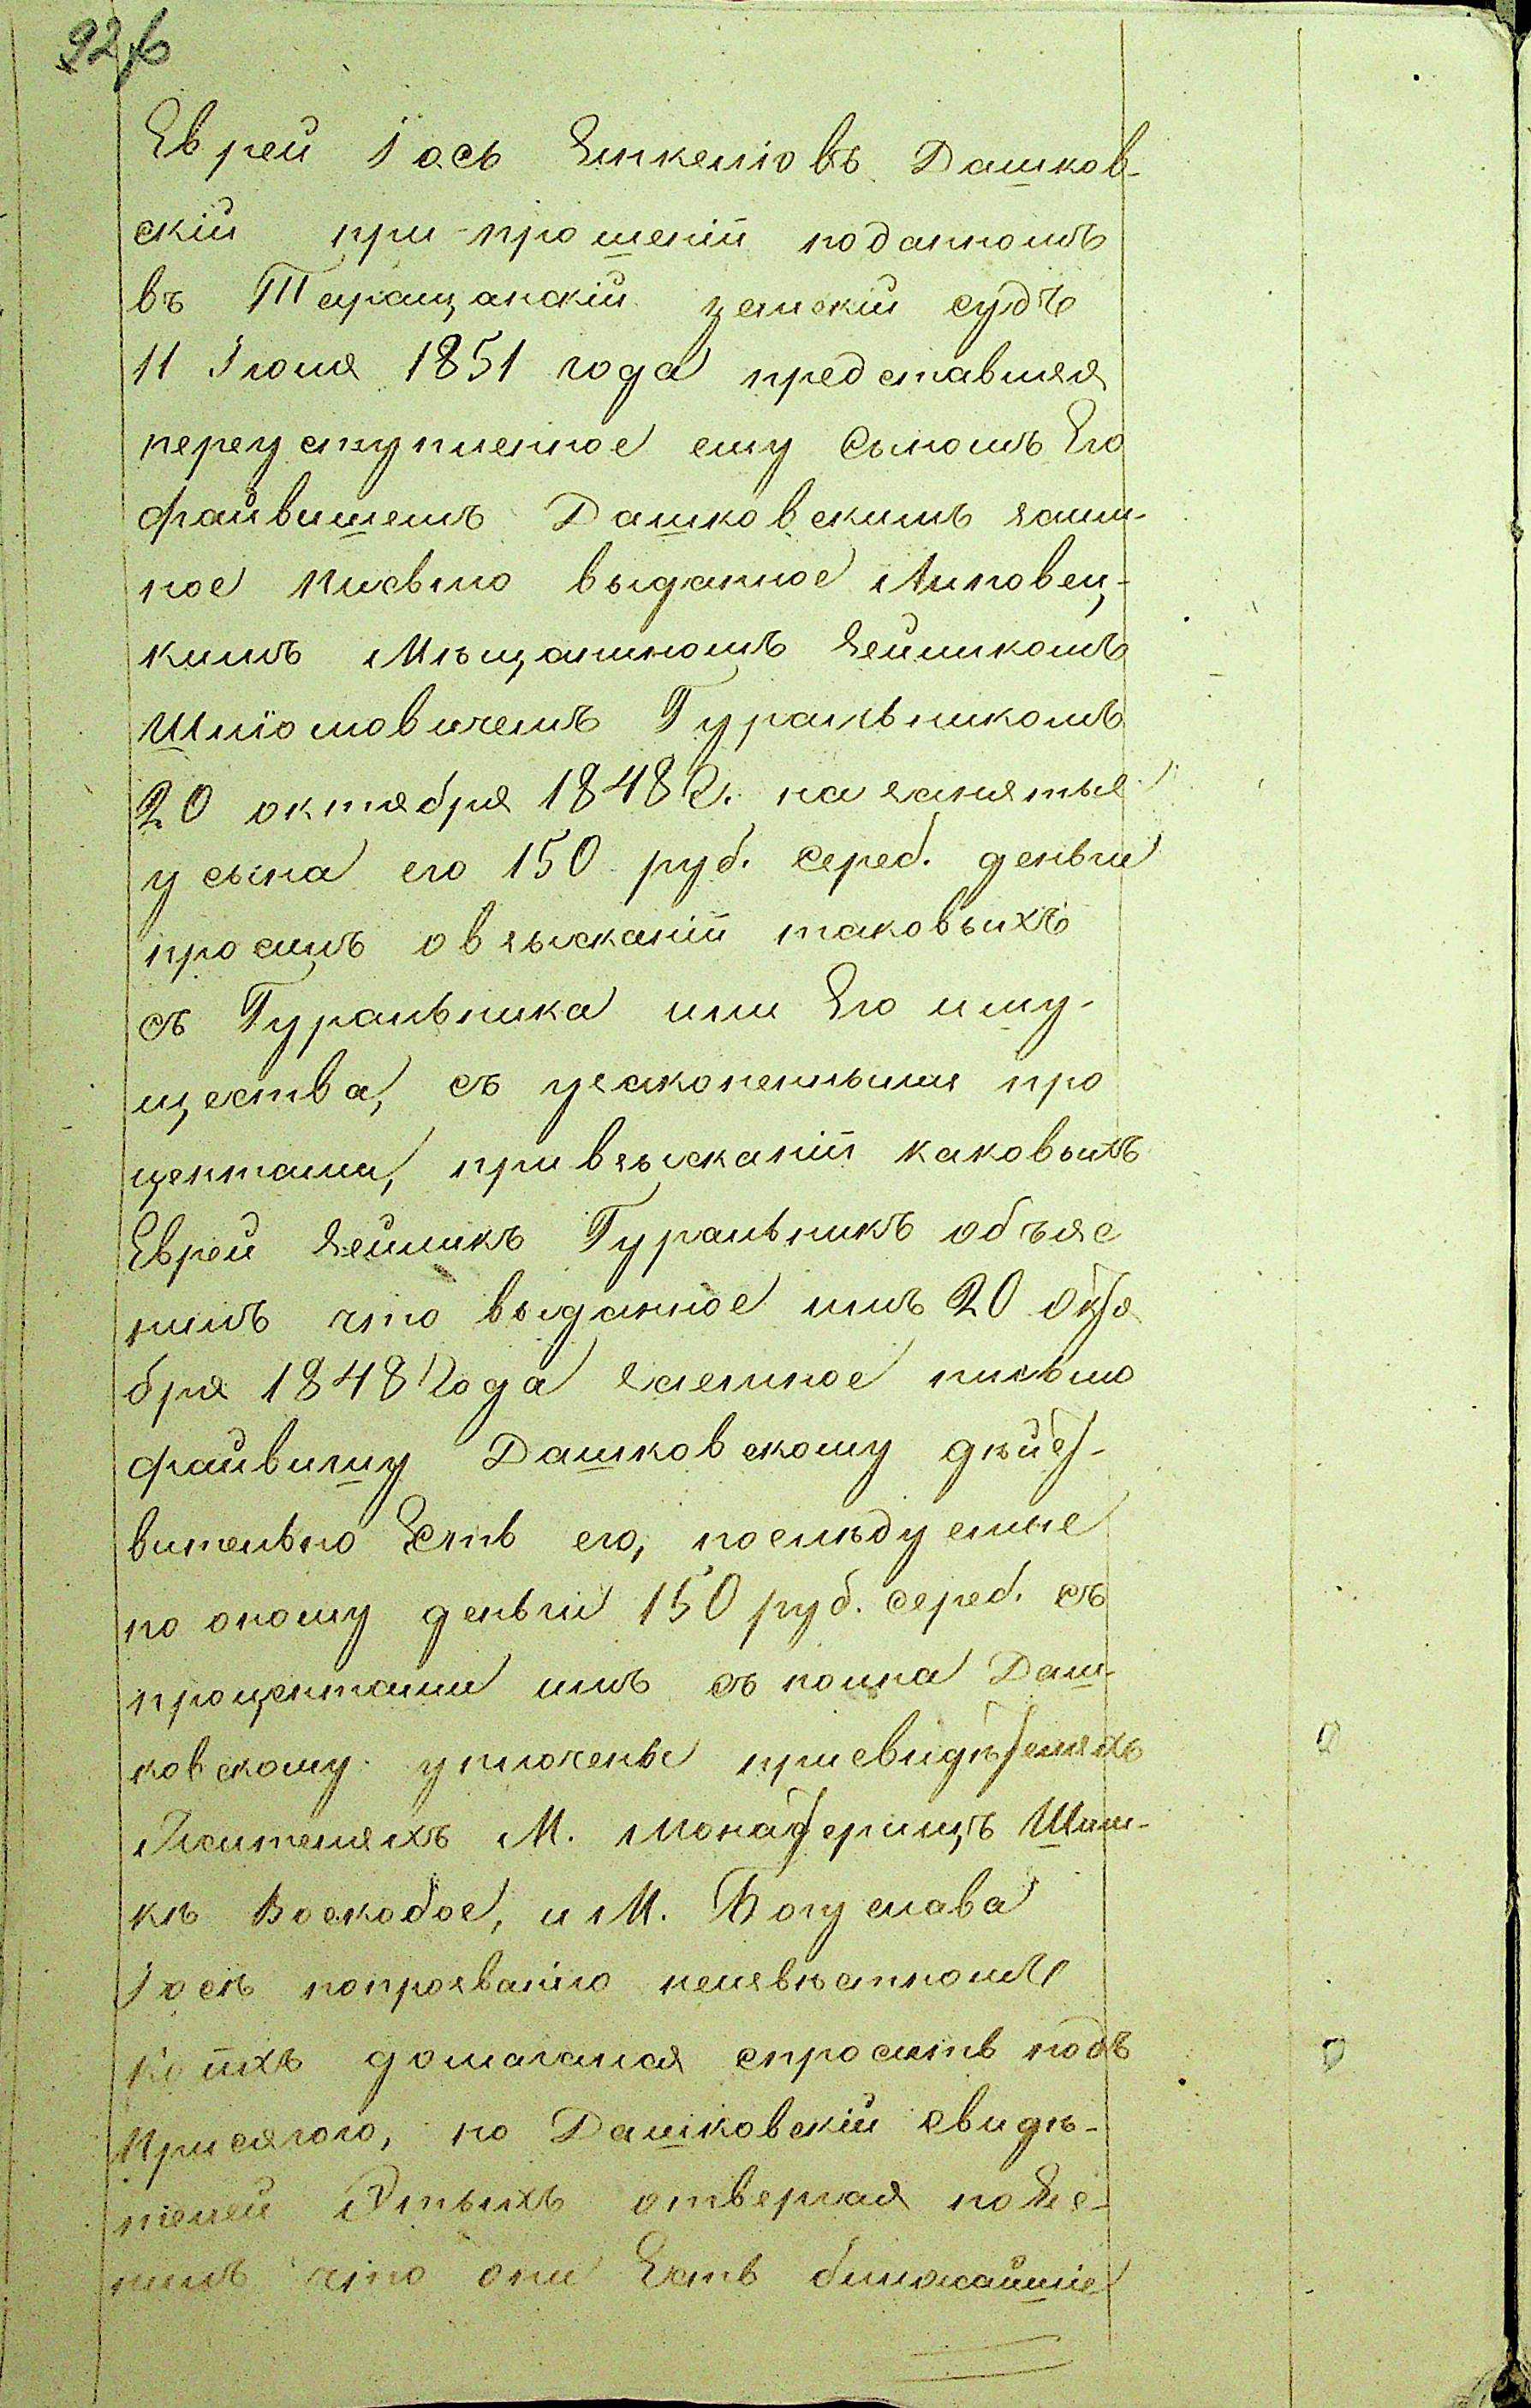 92б
Еврей Iось Янкеліовъ Дашков-
скій при прошеніи поданномъ
въ Таращанскій земскій судъ
11 Iюля 1851 года представляя
переуступленное ему Сыномъ Его
Файвишемъ Дашковскимъ заим-
ное письмо выданное Липовец-
кимъ Мѣщаниномъ Зейликомъ
Шліомовичемъ Гуральникомъ
20 октября 1848 г. на занятые
у сына его 150 руб. сереб. деньги
просилъ о взысканіи таковыхъ
съ Гуральника или Его иму-
щества, съ узаконенными про
центами, при взысканіи каковыхъ
Еврей Зейликъ Гуральникъ объяс
нилъ что выданное имъ 20 Октя
бря 1848 Года заемное письмо
Файвишу Дашковскому дѣйст-
вительно Есть его, послѣдуемые
по оному деньги 150 руб. сереб. съ
процентами имъ съ полна Даш-
ковскому уплочены при свидѣтеляхъ
Жителяхъ М. Монастерищъ Шли-
кѣ Воскобое, и М. Богуслава
Iоскѣ по прозванію неизвѣстномъ
коихъ домагался спросить подъ
присягою, но Дашковскій свидѣ-
телей Этыхъ отвергая пояс-
нилъ что они Есть ближайшіе